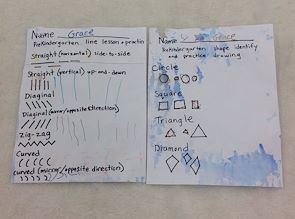 Name Grace
PreKindergarten line lesson + practin
Straight (horizontal) side-to-side
Straight (vertical) up-and-down
Diaginal
Diaginal (mirror/opposite direction)
Zig-zag
Curved
Curved (mirror/opposite direction)
Name Grace
PreKindergarten shape identify
and practice drawing
Circle
Square
Triangle
Diamond